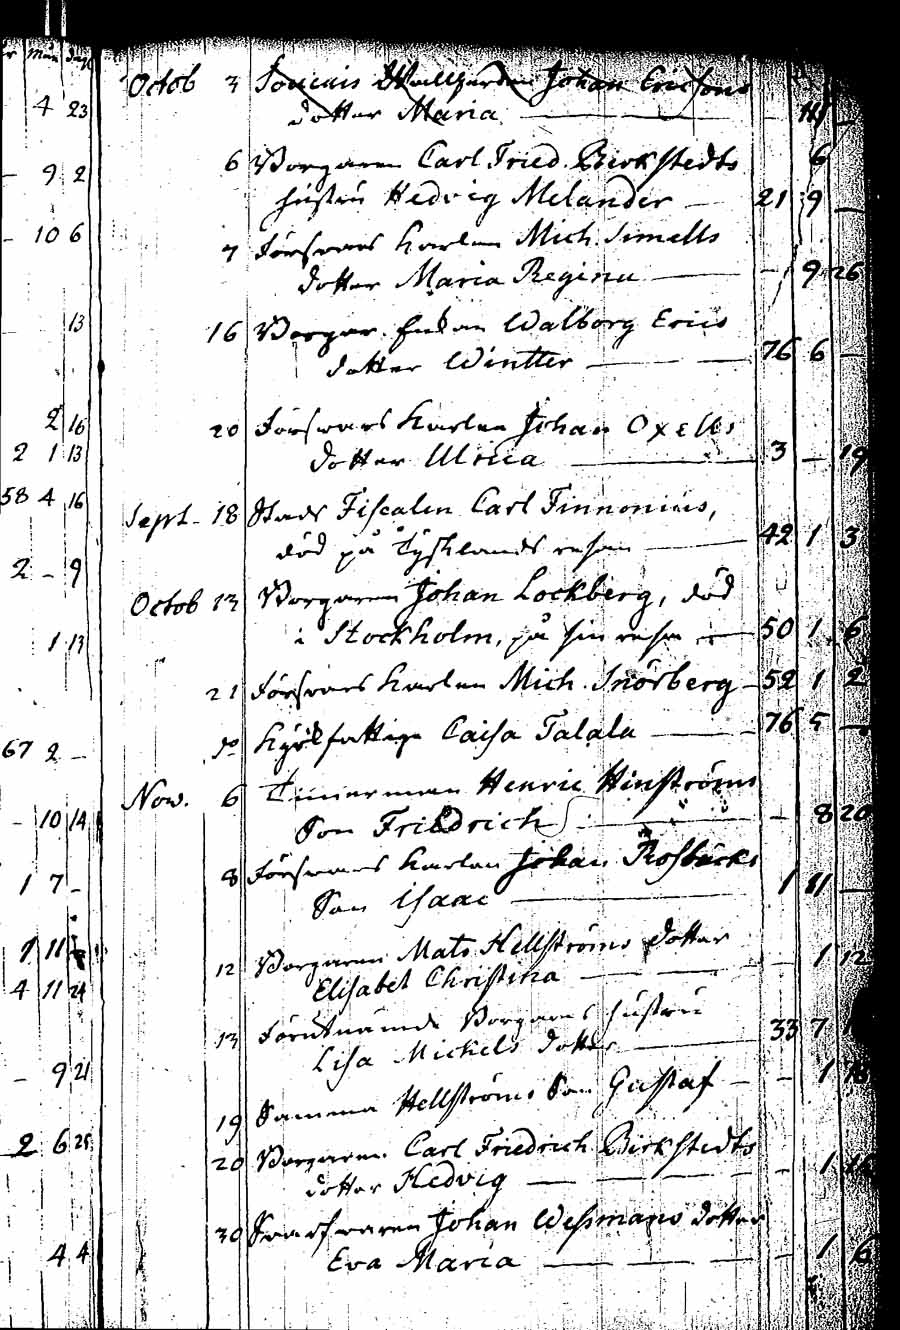 Mån Dag
Octob 3 Johan Ericsons
4 23 dotter Maria — 11 —
6 Borgaren Carl Fried. Birkstedts 6
9 2 hustru Hedvig Melander — 21 9 —
10 6 7 Försvars Karlen Mich. Simells
dotter Maria Regina — - 9 26
13 16 Borgar. Enkan Walborg Erics
dotter Wintter — 76 6 —
2 16 20 Försvars Karlen Johan Oxells
2 1 13 dotter Ulrica — 3 — 19
58 4 16 Sept. 18 Stads Fiscalen Carl Finnonius,
död på Tysklands resan — 42 1 3
2 - 9 Octob 13 Borgaren Johan Lockberg, död
1 13 i Stockholm, på sin resa — 50 1 6
21 Försvars Karlen Mich. Snörberg — 52 1 2
67 2 - do Caisa Talala — 76 5 —
Nov. 6 Timerman Henric Hinströms
- 10 14 Son Friedrich — - 8 20
8 Försvars Karlen Johan Rosbäcks
1 7 - Son Isaac — 1 11 —
1 11 12 Borgaren Mats Hellströms dotter
4 11 24 Elisabet Christina — - 1 12
13 Förutnämde Borgares hustru
Lisa Mickels dotter — 33 7
- 9 21 19 Samma Hellströms Son Gustaf — - 1 18
2 6 25 20 Borgaren Carl Friedrich Birkstedts
dotter Hedvig — - 1
30 Svarfvaren Johan Wessmans dotter
4 4 Eva Maria — - 1 6